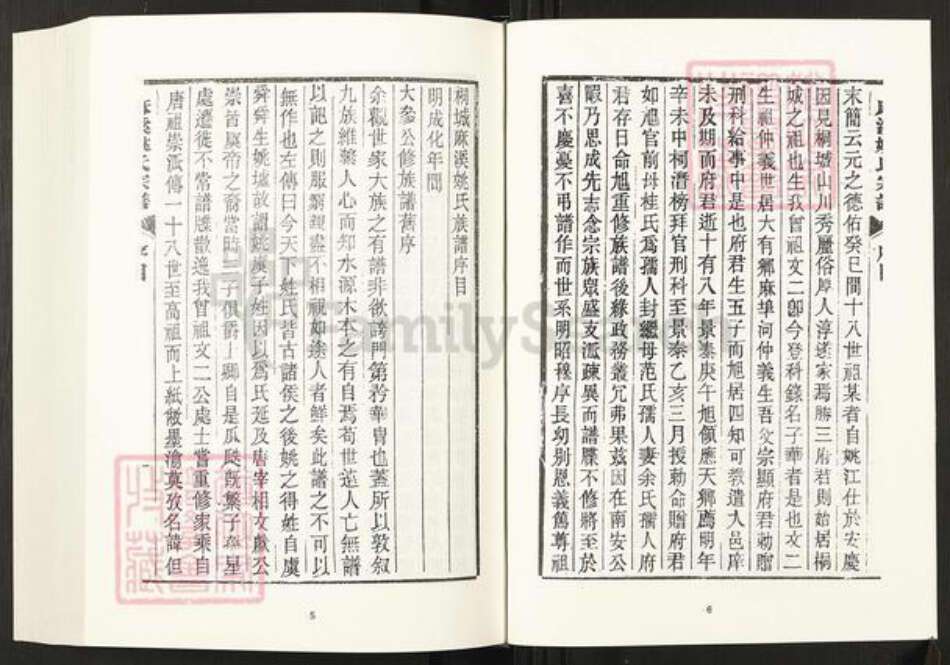 桐城麻溪姚氏族譜序目
明成化年間
大參公修族譜舊序
余觀世家大族之有譜非欲誇門第矜華胄也蓋所以敦叙
九族維繫人心而知水源木本之有自焉苟世遠人亡無譜
以記之則服窮親盡不相視如途人者鮮矣此譜之不可以
無作也左傳曰今天下姓氏皆古諸侯之後姚之得姓自虞
舜舜生姚墟故謂姚
子姓因以為氏延及唐宰相文獻公
崇皆虞帝之裔當時三子俱爵上卿自是瓜瓞既繁子孫星
處遷徙不常譜牒散逸我曾祖文二公處士嘗重修家乘自
唐祖崇派傳一十八世至高祖而上紙敝墨渝莫攷名諱但
5
末簡云元之德佑癸巳間十八世祖某者自姚江仕於安慶
因見桐城山川秀麗俗厚人淳遂家焉勝三府君則始居桐
城之祖也生我曾祖文二卽今登科錄名子華者是也文二
生祖仲義世居大有鄉麻埠河仲義生吾父宗顯府君勅贈
刑科給事中是也府君生五子而旭居四知可敎遣入邑庠
未及期而府君逝十有八年景泰庚午旭領應天鄉薦明年
辛未中柯潛榜拜官刑科至景泰乙亥三月授勅命贈府君
如旭官前母桂氏為孺人封繼母范氏孺人妻余氏孺人府
君存日命旭重修族譜後緣政務叢冗弗果茲因在南安公
暇乃思成先志念宗族眾盛支派疎異而譜牒不修將至於
喜不慶憂不弔譜作而世系明昭穆序長幼別恩義篤尊祖
6
FamilySearch